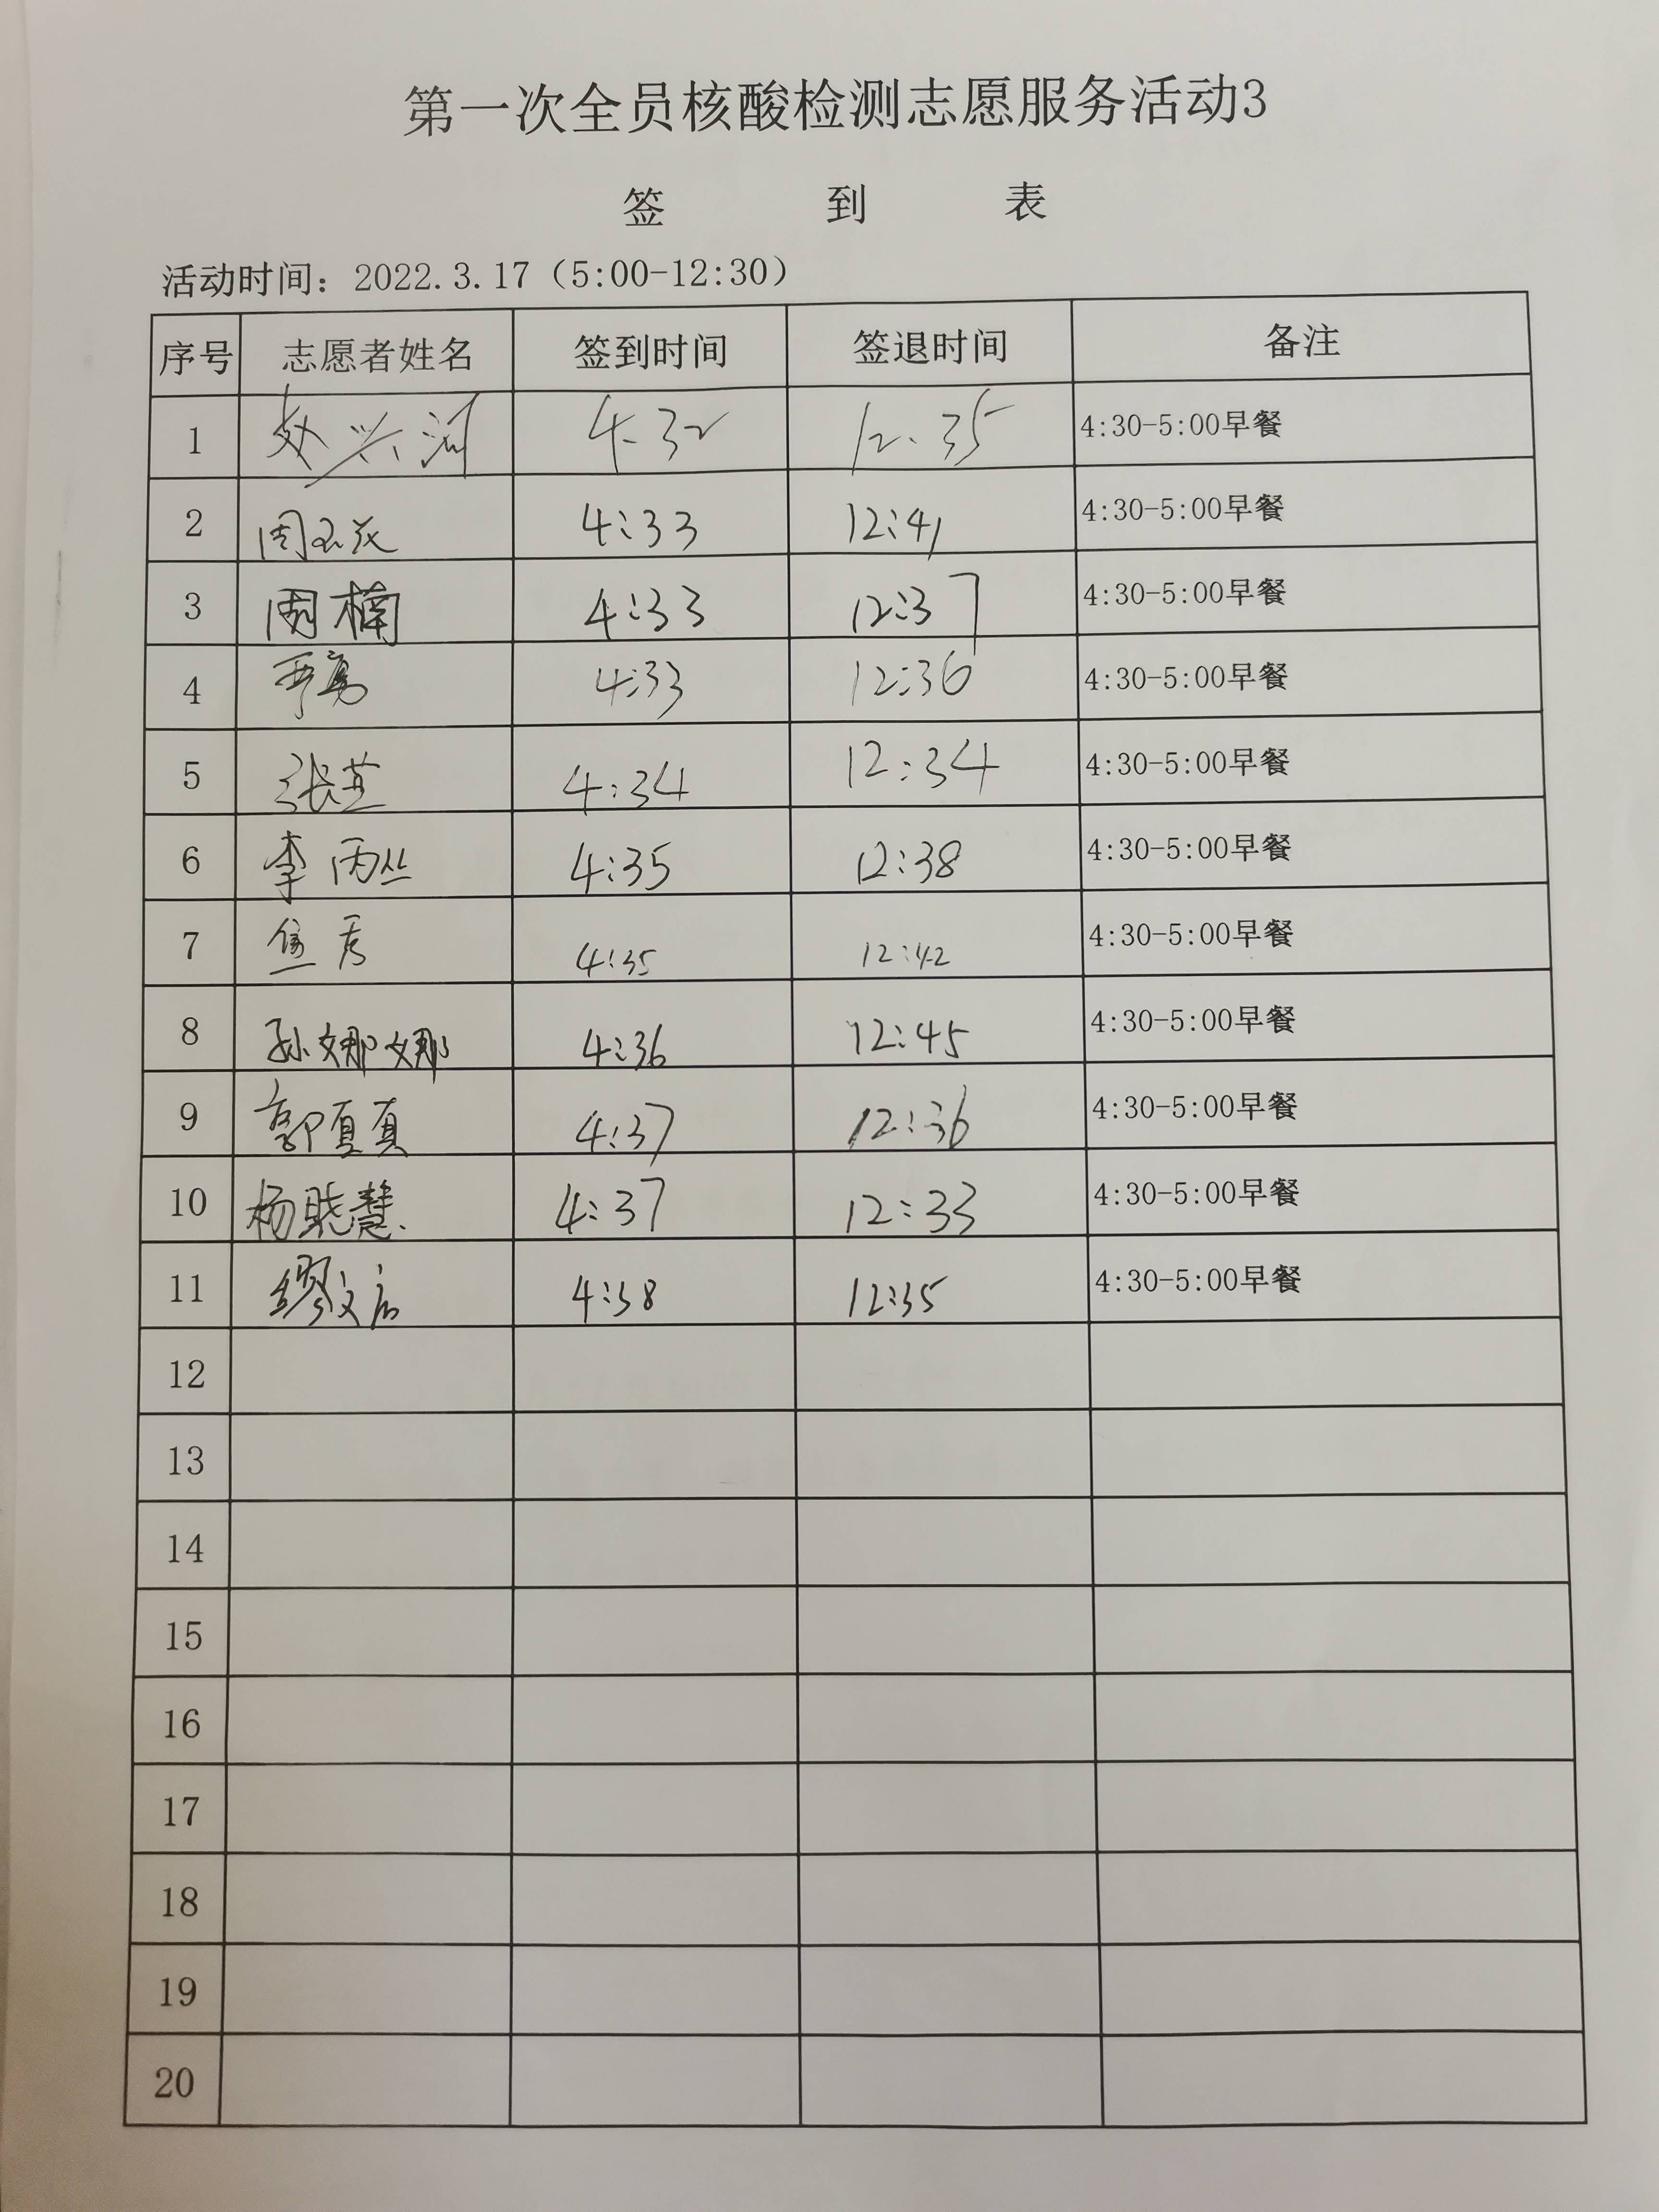 第一次全员核酸检测志愿服务活动3
签 到 表
活动时间：2022.3.17（5:00-12:30）
序号 志愿者姓名 签到时间 签退时间 备注
1 赵兴河 4.32 12.35 4:30-5:00早餐
2 周玉花 4:33 12:41 4:30-5:00早餐
3 周楠 4:33 12:37 4:30-5:00早餐
4 4:33 12:36 4:30-5:00早餐
5 张燕 4:34 12:34 4:30-5:00早餐
6 李丙丛 4:35 12:38 4:30-5:00早餐
7 4:35 12:42 4:30-5:00早餐
8 孙娜娜 4:36 12:45 4:30-5:00早餐
9 郭夏真 4:37 12:36 4:30-5:00早餐
10 杨晓慧 4:37 12:33 4:30-5:00早餐
11 4:38 12:35 4:30-5:00早餐
12
13
14
15
16
17
18
19
20